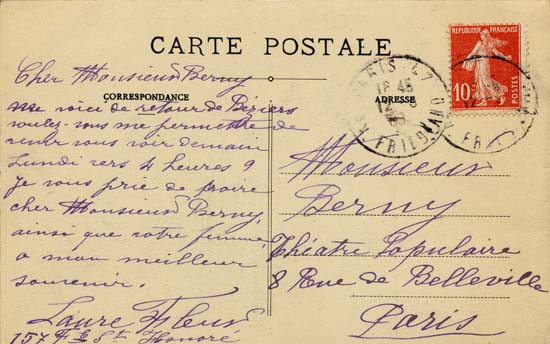 CARTE POSTALE
CORRESPONDANCE
ADRESSE
Cher Monsieur Berny
me voici de retour de Béziers
voulez-vous me permettre de
venir vous voir demain
Lundi vers 4 heures ?
Je vous prie de croire
cher Monsieur Berny,
ainsi que votre femme
a mon meilleur
souvenir.
Laure Fleur
157 Fg St Honoré
Monsieur
Berny
Théatre Populaire
8 Rue de Belleville
Paris
PARIS
18 45
FRIEDLAND
REPUBLIQUE FRANÇAISE
10c